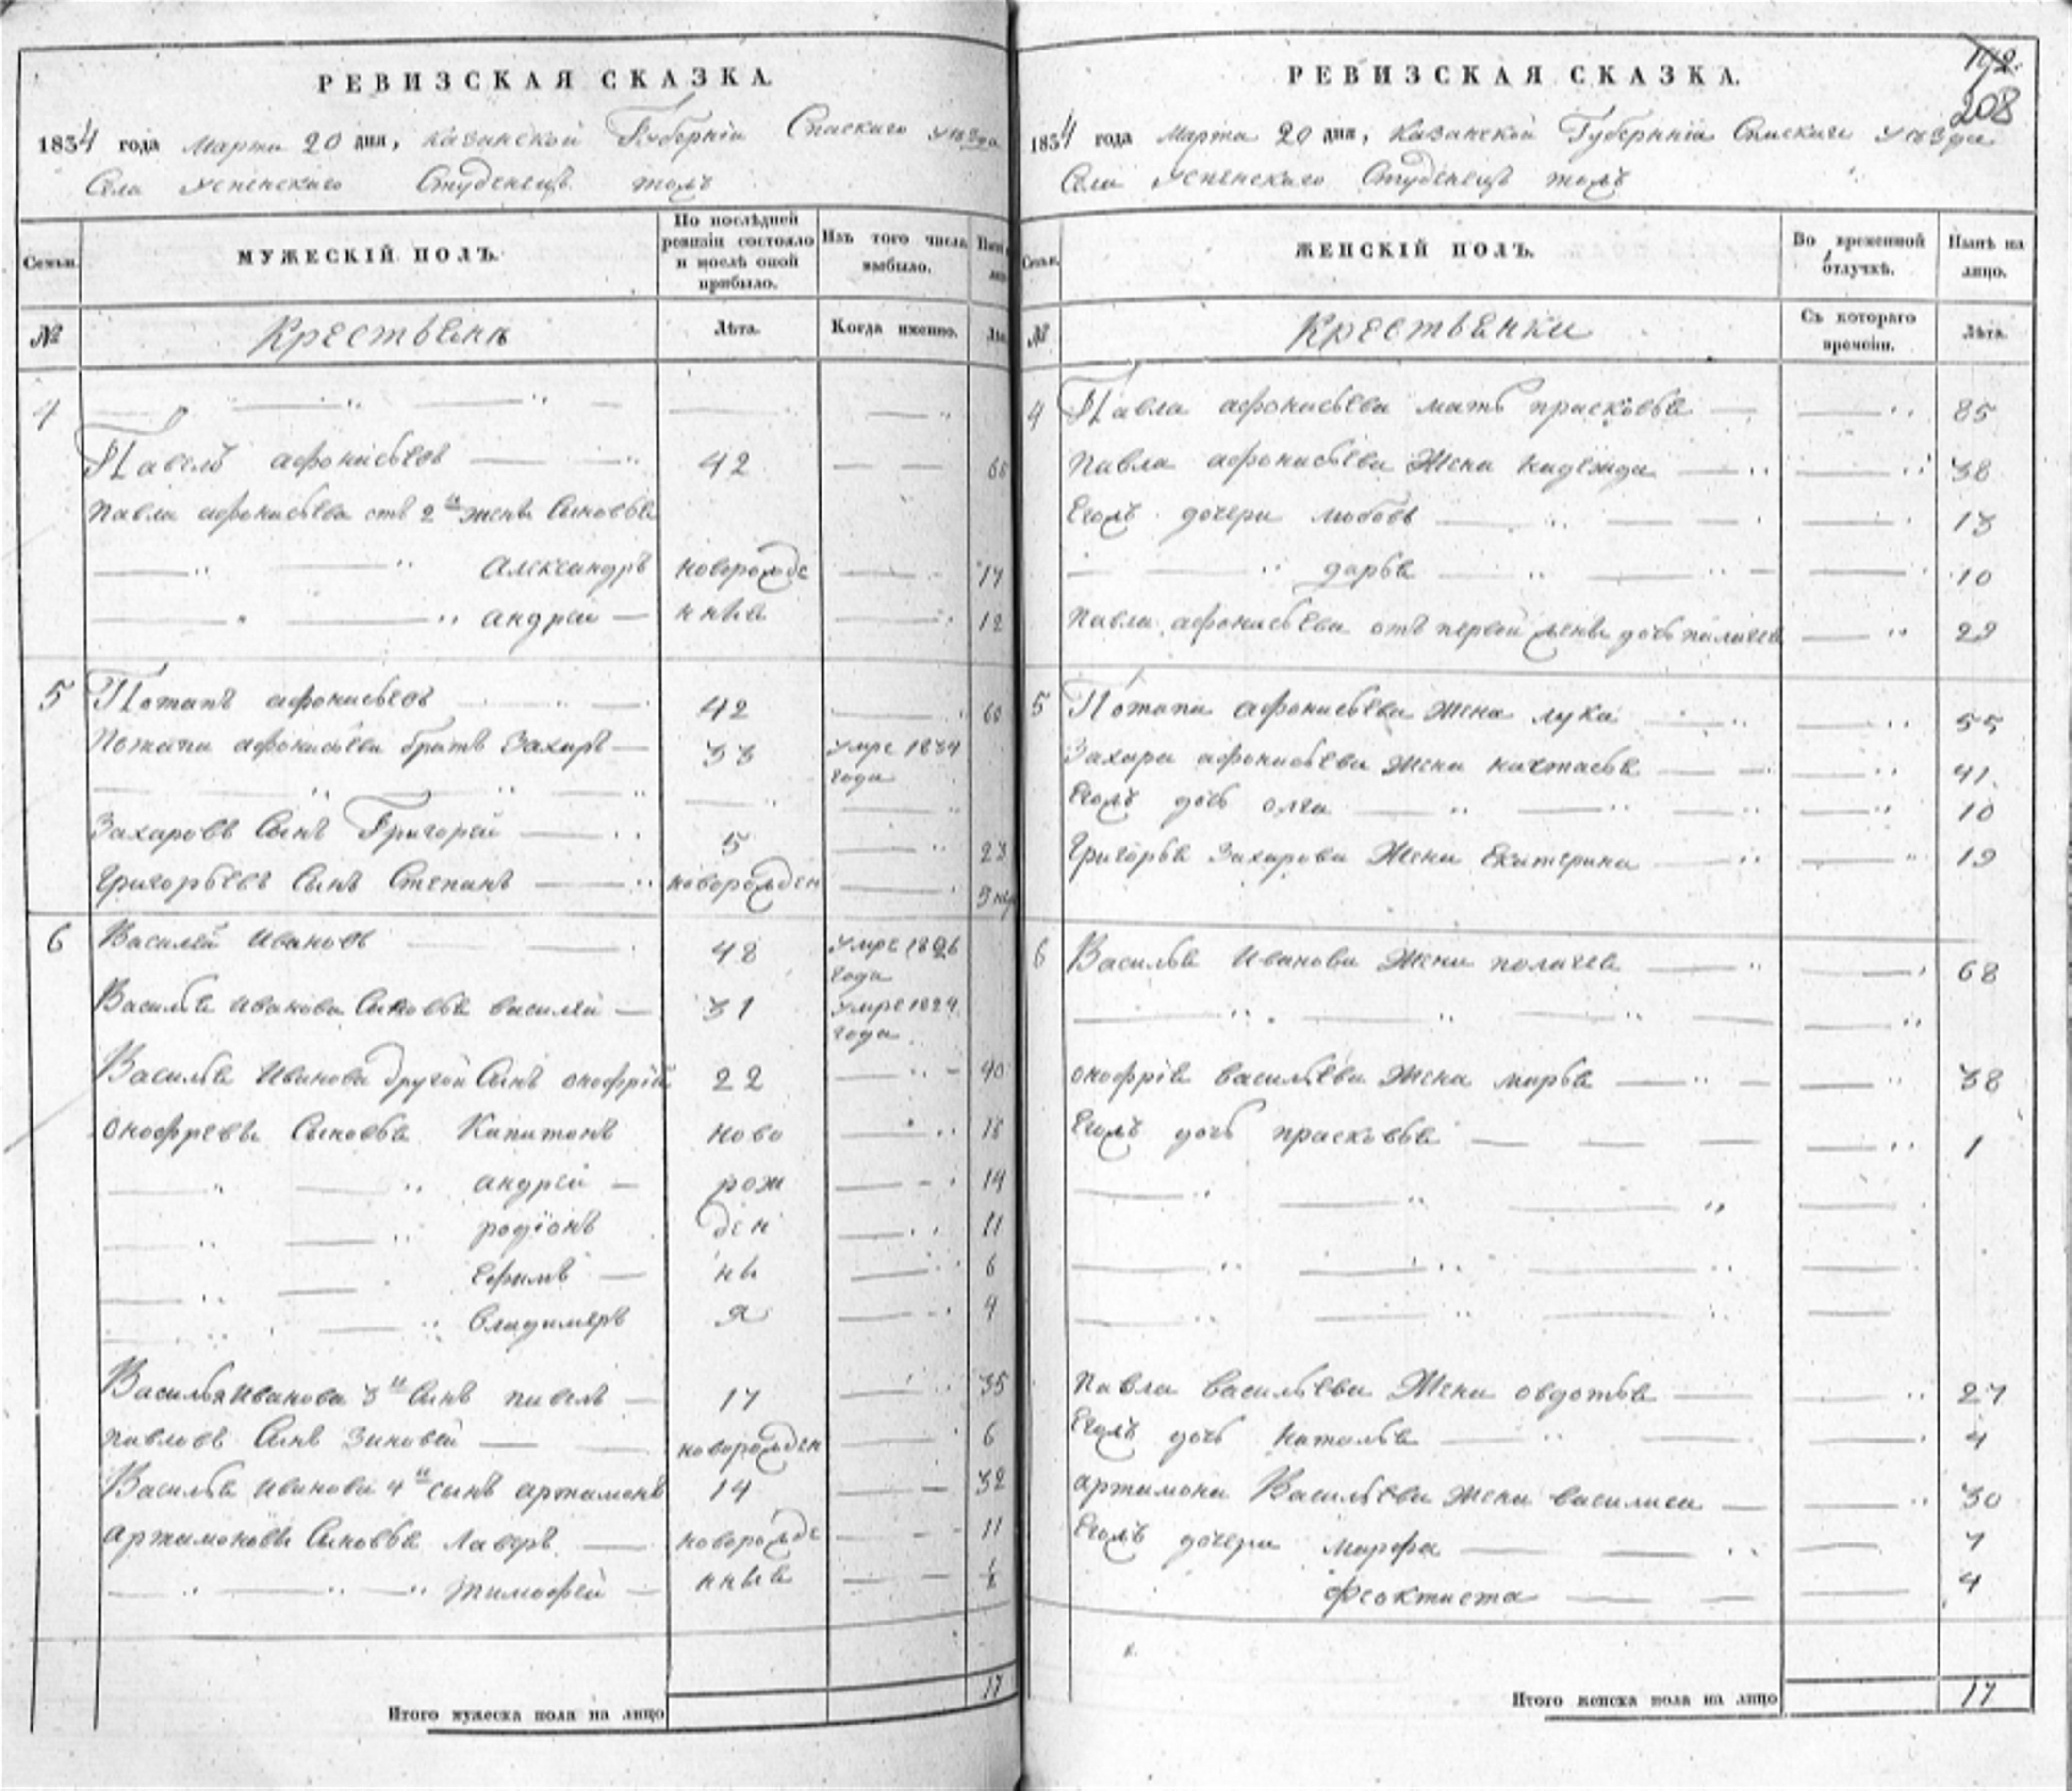 РЕВИЗСКАЯ СКАЗКА.
1834 года Марта 20 дня, Казанской Губернiи Спаскаго уезда
Села Успенскаго Студенецъ тожъ
Семьи.
МУЖЕСКІЙ ПОЛЪ.
По послѣдней ревизіи состояло и послѣ оной прибыло.
Изъ того числа выбыло.
№
Крестьяне
Лѣта.
Когда именно.
4
Павелъ афонасьевъ 42 60
Павла афонасьева отъ 2й жены Сыновья
Александръ новорожде 17
андрей нныя 12
5 Потапъ афонасьевъ 42 60
Потапа афонасьева братъ Захаръ 33 умре 1834 года
Захаровъ Сынъ Григорей 5 23
Григорьевъ Сынъ Степанъ новорожден
6 Василей Ивановъ 48 умре 1826 года
Василья Иванова Сыновья василей 31 умре 1824 года
Василья Иванова другой Сынъ онофрій 22 40
онофревы Сыновья Капитонъ ново 18
андрей рож 14
родіонъ ден 11
Ефимъ ны 6
Владимеръ я 4
Василья Иванова 3й Сынъ павелъ 17 35
павловъ Сынъ Зиновей новорожден 6
Василья Иванова 4й сынъ артамонъ 14 32
артамоновы Сыновья Лаверъ новорожде 11
тимофей нныя ½
Итого мужеска пола на лицо 17
192.
208
РЕВИЗСКАЯ СКАЗКА.
1834 года Марта 20 дня, Казанской Губерніи Спаскаго уезда
Села Успенскаго Студенецъ тожъ
Семьи.
ЖЕНСКІЙ ПОЛЪ.
Во временной отлучкѣ.
Нынѣ на лицо.
№
Крестьянки
Съ котораго времени.
Лѣта.
4 Павла афонасьева мать прасковья 85
Павла афонасьева Жена надежда 38
Егожъ дочери любовь 13
дарья 10
Павла афонасьева отъ первой жены дочь палагея 29
5 Потапа афонасьева жена лука 55
Захара афонасьева жена настасья 41
Егожъ дочь олга 10
Григорья Захарова Жена Екатерина 19
6 Василья Иванова Жена палагея 68
онофрія васильева Жена марья 38
Егожъ дочь прасковья 1
Павла васильева Жена овдотья 27
Егожъ дочь наталья 4
артамона Васильева жена василиса 30
Егожъ дочери марфа 7
феоктиста 4
Итого женска пола на лицо 17